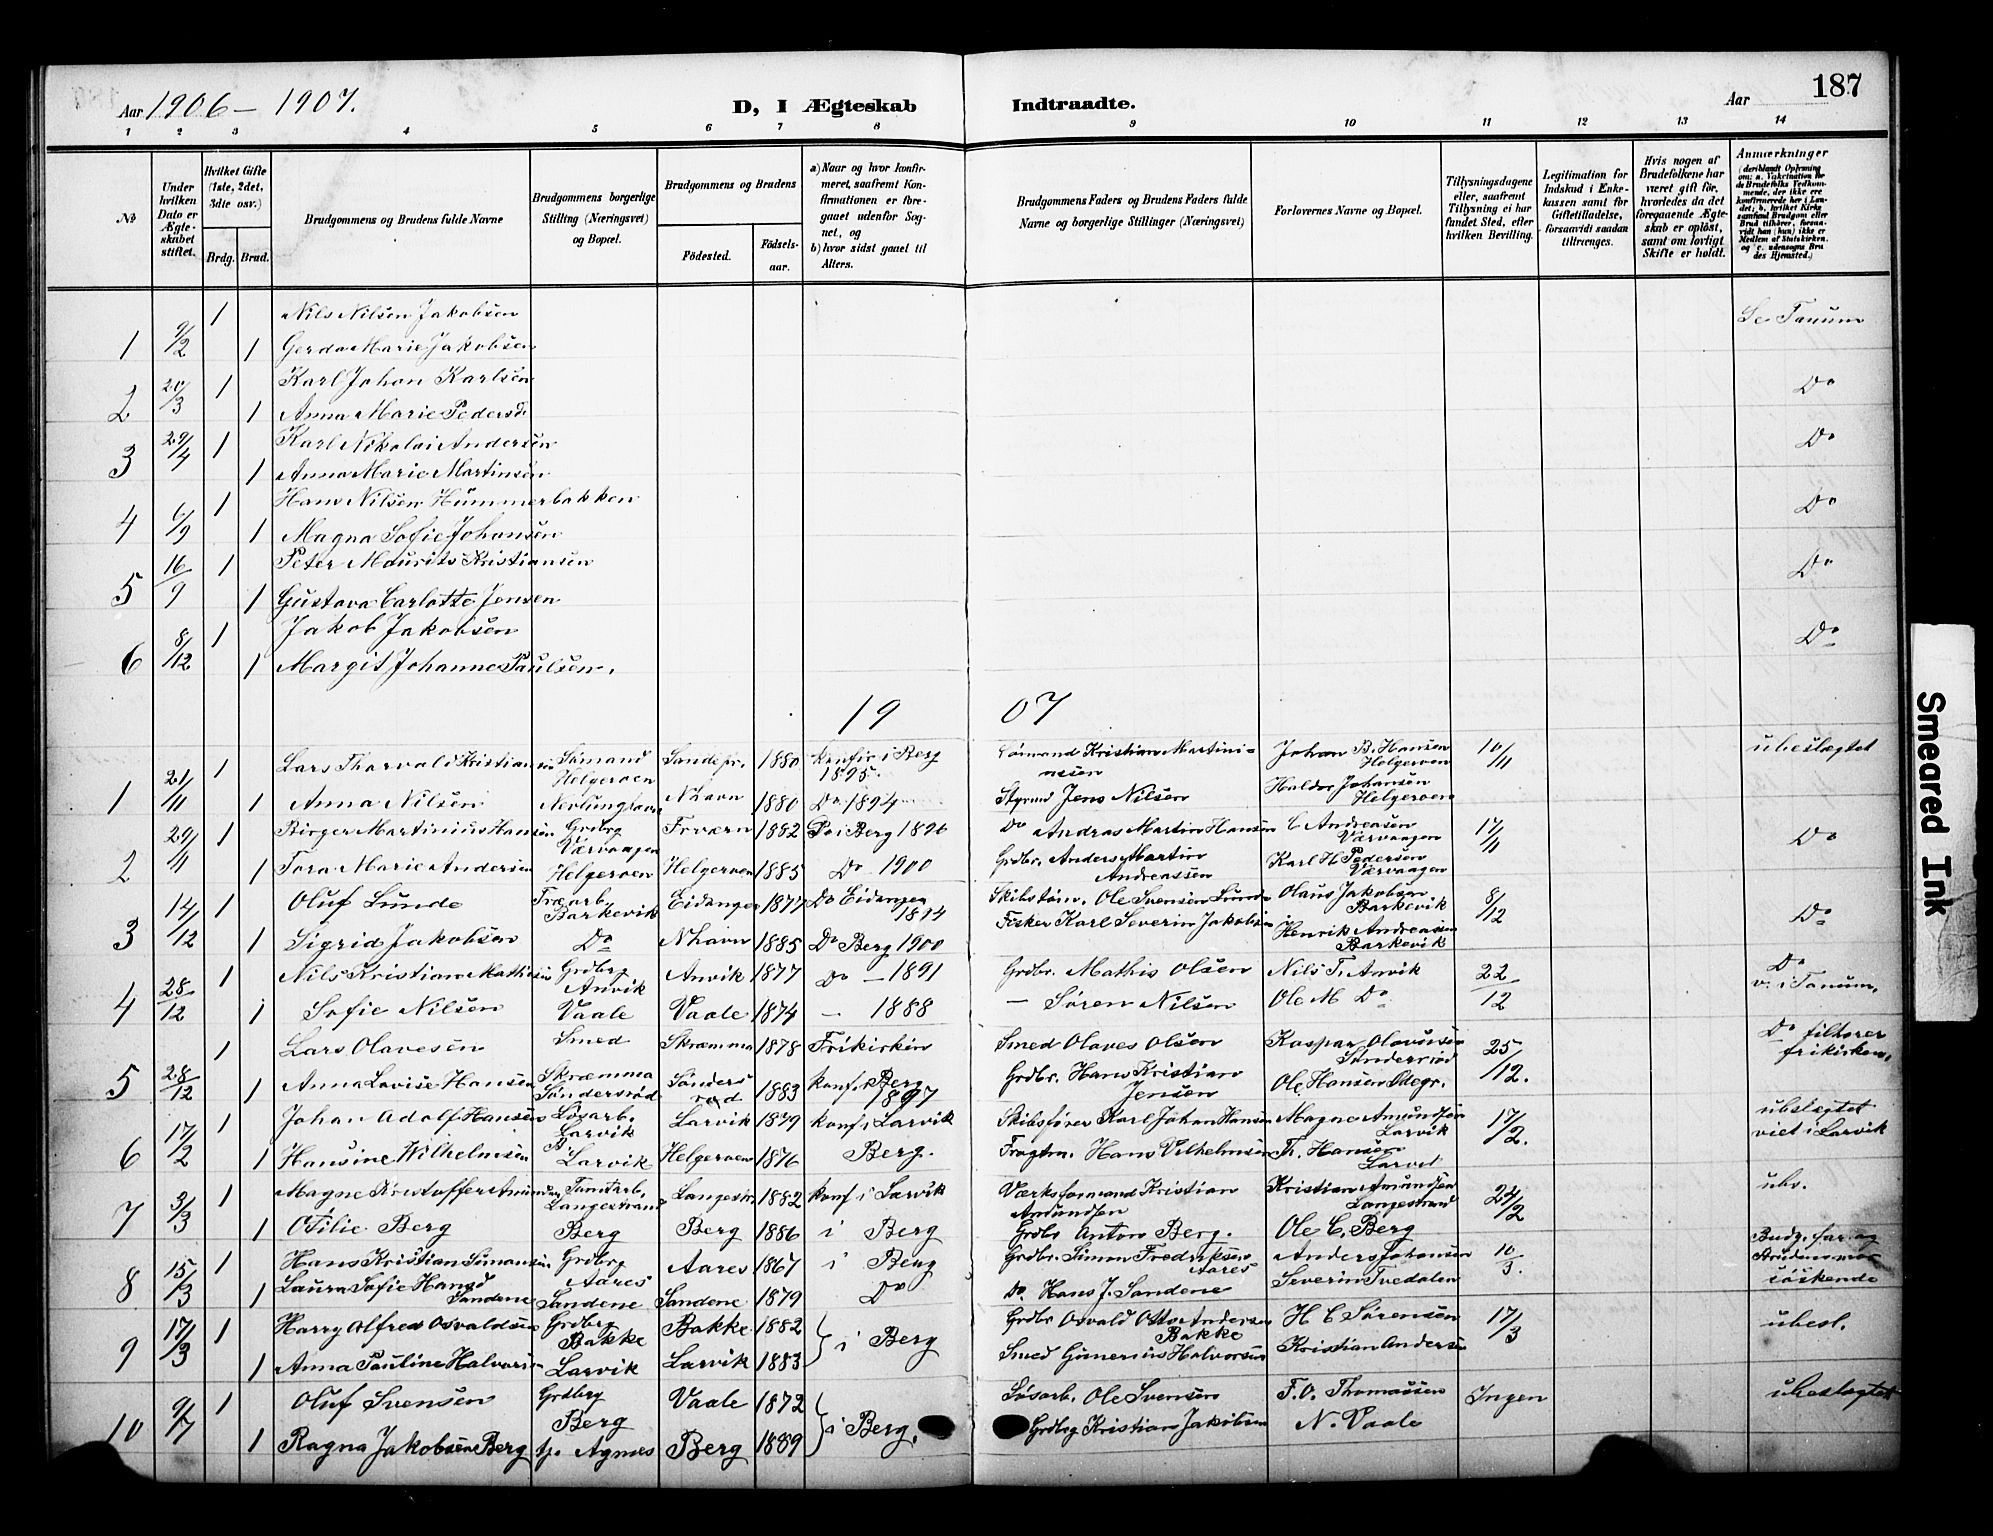 Aar 1906 - 1907.
D, I Ægteskab Indtraadte.
Aar
187
1 2 3 4 5 6 7 8 9 10 11 12 13 14
№
Under hvilken Dato er Ægteskabet stiftet.
Hvilket Gifte (1ste, 2det, 3die osv.)
Brdg. Brud.
Brudgommens og Brudens fulde Navne
Brudgommens borgerlige Stilling (Næringsvei) og Bopæl.
Brudgommens og Brudens
Födested.
Födselsaar.
a) Naar og hvor konfirmeret, saafremt Konfirmationen er foregaaet udenfor Sognet, og
b) hvor sidst gaaet til Alters.
Brudgommens Faders og Brudens Faders fulde Navne og borgerlige Stillinger (Næringsvei)
Forlovernes Navne og Bopæl.
Tillysningsdagene eller, saafremt Tillysning ei har fundet Sted, efter hvilken Bevilling.
Legitimation for Indskud i Enkekassen samt for Giftetilladelse, forsaavidt saadan tiltrænges.
Hvis nogen af Brudefolkene har været gift för, hvorledes da det foregaaende Ægteskab er oplöst, samt om lovligt Skifte er holdt.
Anmærkninger
1 9/2 1 Nils Nilsen Jakobsen Se Tanum
1 Gerda Marie Jakobsen
2 20/3 1 Karl Johan Karlsen Do
1 Anna Marie Pedersd.
3 29/4 1 Karl Nikolai Andersen Do
1 Anna Marie Martinsen
4 6/9 1 Hans Nilsen Hummerbakken Do
1 Magna Sofie Johansen
5 16/9 1 Peter Maurits Kristiansen Do
1 Gustava Carlotte Jensen
6 8/12 1 Jakob Jakobsen Do
1 Margit Johanne Paulsen.
19 07
1 21/11 1 Lars Tharvald Kristiansen Sömand Helgeroen Sandefr. 1880 Konfir i Berg 1895. Sömand Kristian Martiniassen Johan B. Hansen Helgeroen 10/11 ubeslægtet
1 Anna Nilsen Nevlunghavn Nhavn 1880 Do 1894 Styrmd Jens Nilsen Haldor Johansen Helgeroen
2 29/11 1 Birger Martinius Hansen Grdbrg Værvaagen Tværn 1882 Do i Berg 1896 Do Andras Martin Hansen C Andreasen Værvaagen 17/11 Do
1 Tora Marie Andersen Helgeroen Helgeroen 1885 Do 1900 Grdbr. Anders Martin Andreassen Karl H. Pedersen Værvaagen
3 14/12 1 Oluf Lunde Træarb. Barkevik Eidanger 1877 Do Eidanger Skibstöm. Ole Svensen Lunde Olaus Jakobsen Barkevik 8/12 Do
1 Sigrid Jakobsen Do Nhavn 1885 Do Berg 1900 Fisker Karl Severin Jakobsen Henrik Andreasen Barkevik
4 28/12 1 Nils Kristian Mathisen Grdbrg Anvik Anvik 1877 Do - 1891 Grdbr. Mathis Olsen Nils T. Anvik 22/12 Do v. i Tanum.
1 Sofie Nilsen Vaale Vaale 1874 - 1888 - Søren Nilsen Ole M Do
5 28/12 1 Lars Olavesen Smed Skræmma Skræmma 1878 Frikirken Smed Olaves Olsen Kaspar Olavesen Søndersröd 25/12. Do tilhører frikirken.
1 Anna Lovise Hansen Søndersröd Sönders röd 1883 konf. i Berg 1897 Grdbr. Hans Kristian Jensen Ole Hansen Odegr.
6 17/2 1 Johan Adolf Hansen Løsarb. Larvik Larvik 1879 konf i Larvik Skibsfører Karl Johan Hansen Magne Amundsen Larvik 17/2. ubslægtet viet i Larvik
1 Hansine Wilhelmsen Larvik Helgeroen 1876 Berg. Fragtm. Hans Vilhelmsen Th. Hansen
7 3/3 1 Magne Kristoffer Amundsen Tomtarb. Langestrand Langestr. 1882 konf i Larvik Værksformand Kristian Amundsen Kristian Amundsen Langestrand 24/2 ubs.
1 Otilie Berg Berg Berg 1886 i Berg Grdbr Anton Berg. Ole C. Berg
8 15/3 1 Hans Kristian Simonsen Grdbrg Aares Aares 1867 i Berg Grdbr. Simon Fredriksen Aares Anders Johansen 10/3. Brudg. far og Brudens mor söskende
1 Laura Sofie Hansd Sandene Sandene Sandene 1879 Do Do Hans J. Sandene Severin Tvedalen
9 17/3 1 Harry Alfred Osvaldsen Grdbrg Bakke Bakke 1882 i Berg Grdbr Osvald Otto Andersen Bakke H C Sørensen 17/3 ubesl.
1 Anna Pauline Halvorsen Larvik Larvik 1883 Smed Gunerius Halvorsen Kristian Andersen
10 9/7 1 Oluf Svensen Grdbrg Berg Vaale 1872 i Berg. Løsarb. Ole Svensen T. O. Thomassen Ingen ubeslægtet
1 Ragna Jakobsen Berg tj. Agnes Berg 1889 Grdbrg Kristian Jakobsen N. Vaale
Smeared Ink